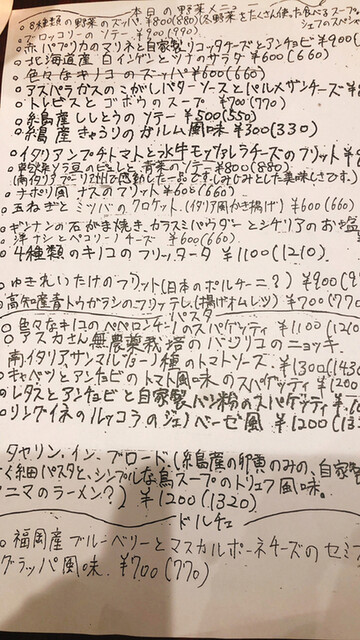 本日の野菜メニュー
○8種類の野菜のズッパ ¥800(880)(冬野菜をたくさん使った食べるスープ
シェフのスペシャ
○ブロッコリーのソテー ¥900(990)
○赤パプリカのマリネと自家製リコッタチーズとアンチョビ ¥900(
○北海道産白インゲンとツナのサラダ ¥600(660)
○色々なキノコのズッパ ¥600(660)
○アスパラガスのこがしバターソースとパルメザンチーズ ¥8
○トレビスとゴボウのスープ ¥700(770)
○糸島産ししとうのソテー ¥500(550)
○糸島産きゅうりのガルム風味 ¥300(330)
○イタリアンプチトマトと水牛モッツァレラチーズのフリット ¥9
青菜のソテー ¥800(880)
(南イタリアプーリア州で感動した一品です。しみじみとした美味しさです。)
○ナポリ風ナスのフリット ¥600(660)
○玉ねぎとミツバのクロケット。(イタリア風かき揚げ) ¥600(660)
○ギンナンの石がま焼き、カラスミパウダーとシチリアのお塩
○洋ナシとペコリーノチーズ ¥600(660)
○4種類のキノコのフリッタータ ¥1100(1210)
○ゆき丸いたけのフリット(日本のポルチーニ?) ¥900(9
○高知産青トウガラシのフリッテレ。(揚げオムレツ) ¥700(770)
パスタ
○色々なキノコのペペロンチーノのスパゲッティ ¥1100(1210
○アスカさん無農薬栽培のバジリコのニョッキ
南イタリアサンマルツァーノ種のトマトソース. ¥1300(1430
○キャベツとアンチョビのトマト風味のスパゲッティ ¥1200
○レタスとアンチョビと自家製パン粉のスパゲッティ ¥
○リングイネのルッコラのジェノベーゼ風 ¥1200(132
タヤリン・イン・ブロード(糸島産の卵黄のみの、自家製
く細パスタと、シンプルな鳥スープのトリュフ風味。
ニマのラーメン?) ¥1200(1320)
ドルチェ
○福岡産ブルーベリーとマスカルポーネチーズのセミフ
グラッパ風味. ¥700(770)